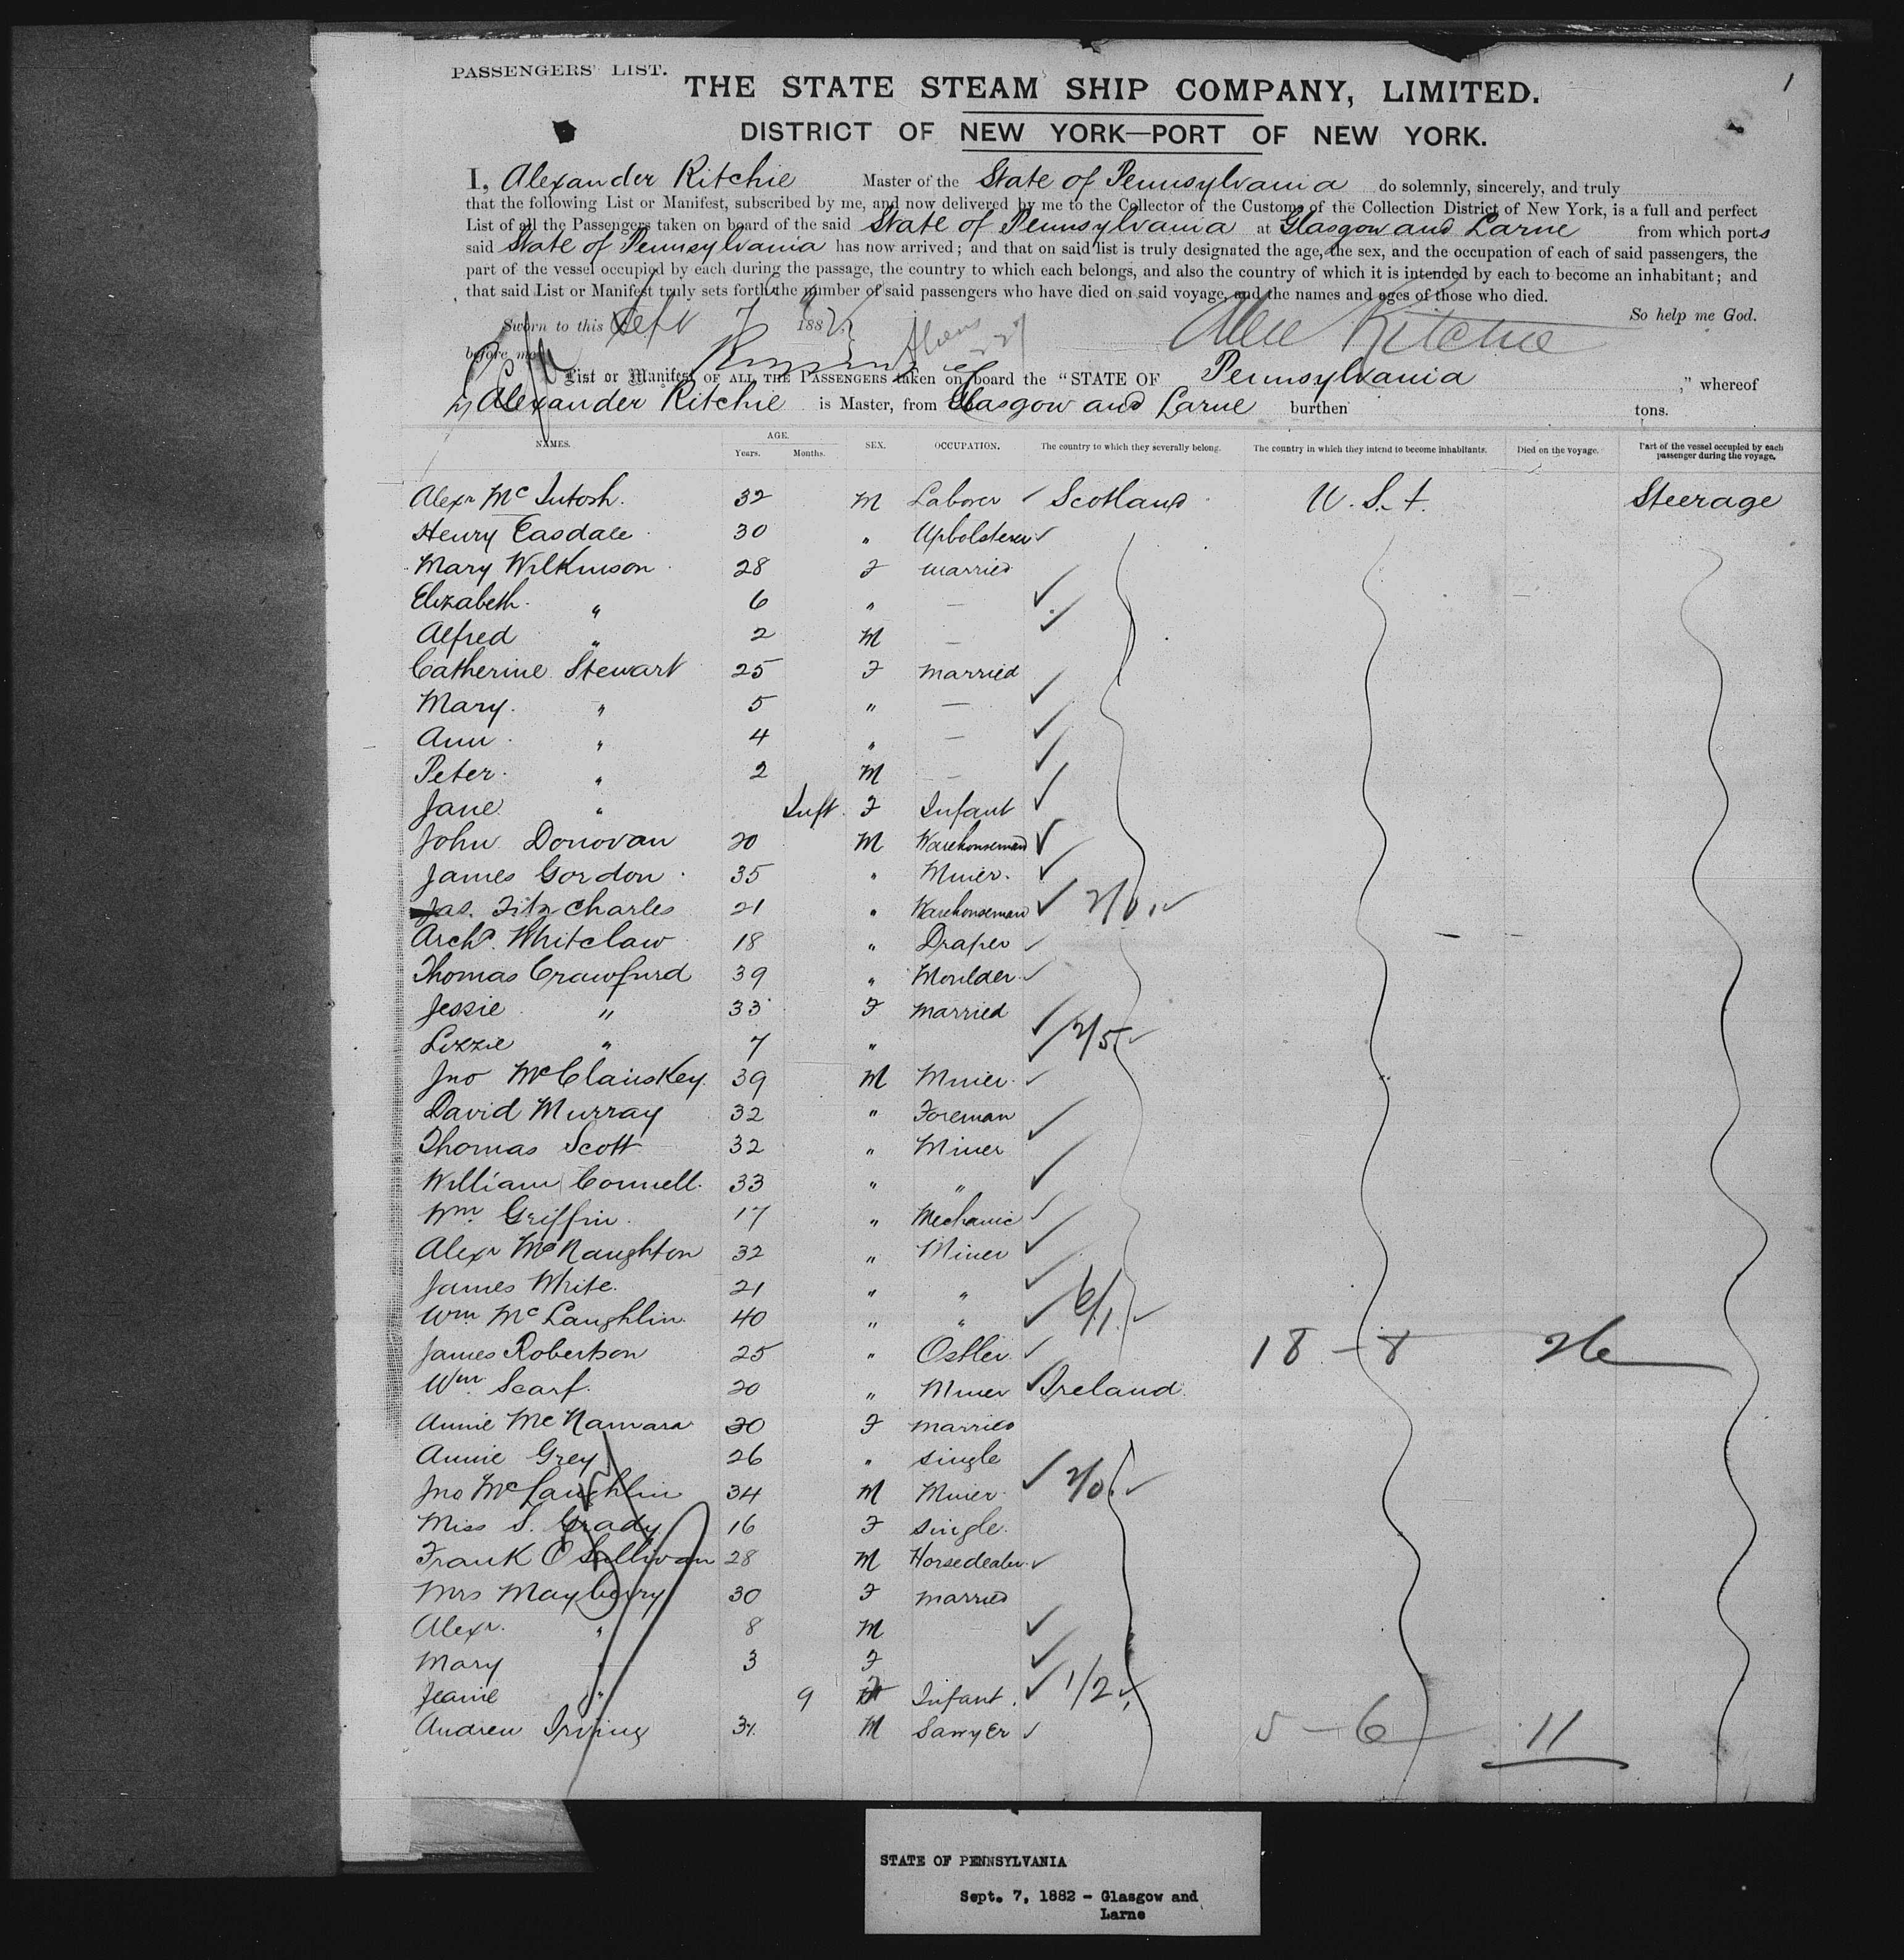 PASSENGERS' LIST.
1
THE STATE STEAM SHIP COMPANY, LIMITED.
DISTRICT OF NEW YORK—PORT OF NEW YORK.
I, Alexander Ritchie Master of the State of Pennsylvania do solemnly, sincerely, and truly
that the following List or Manifest, subscribed by me, and now delivered by me to the Collector of the Customs of the Collection District of New York, is a full and perfect
List of all the Passengers taken on board of the said State of Pennsylvania at Glasgow and Larne from which ports
said State of Pennsylvania has now arrived; and that on said list is truly designated the age, the sex, and the occupation of each of said passengers, the
part of the vessel occupied by each during the passage, the country to which each belongs, and also the country of which it is intended by each to become an inhabitant; and
that said List or Manifest truly sets forth the number of said passengers who have died on said voyage, and the names and ages of those who died.
Sworn to this Sept 7 1882 So help me God.
before me Alex Ritchie
List or Manifest OF ALL THE PASSENGERS taken on board the "STATE OF Pennsylvania ," whereof
Alexander Ritchie is Master, from Glasgow and Larne burthen tons.
NAMES. AGE. Years. Months. SEX. OCCUPATION. The country to which they severally belong. The country in which they intend to become inhabitants. Died on the voyage. Part of the vessel occupied by each passenger during the voyage.
Alexr McIntosh. 32 M Laborer ✓ Scotland U.S.A. Steerage
Henry Easdale 30 " Upholsterer ✓
Mary Wilkinson 28 F married
Elizabeth " 6 " — ✓
Alfred " 2 M — ✓
Catherine Stewart 25 F married
Mary " 5 " — ✓
Ann " 4 " — ✓
Peter " 2 M — ✓
Jane " Inft F Infant ✓
John Donovan 20 M Warehouseman ✓
James Gordon 35 " Miner ✓
Jas. Fitz Charles 21 " Warehouseman ✓ 2/0 ✓
Archd. Whitelaw 18 " Draper ✓
Thomas Crawfurd 39 " Moulder ✓
Jessie " 33 F married ✓
Lizzie " 7 " ✓ 2/5 ✓
Jno McClauskey 39 M Miner ✓
David Murray 32 " Foreman ✓
Thomas Scott 32 " Miner ✓
William Connell 33 " " ✓
Wm Griffin 17 " Mechanic ✓
Alexr McNaughton 32 " Miner ✓
James White 21 " " ✓
Wm McLaughlin 40 " " ✓ 6/1 ✓
James Robertson 25 " Ostler ✓ 18 - 8 26
Wm Scarf. 20 " Miner ✓ Ireland
Annie McNamara 30 F married
Annie Grey 26 " single
Jno McLaughlin 34 M Miner ✓ 2/0 ✓
Miss S. Grady 16 F single
Frank O'Sullivan 28 M Horsedealer ✓
Mrs Mayberry 30 F married
Alexr. " 8 M ✓
Mary " 3 F ✓
Jeanie " 9 F Infant ✓ 1/2 ✓
Andrew Irving M Sawyer ✓ 5 - 6 11
STATE OF PENNSYLVANIA
Sept. 7, 1882 - Glasgow and
Larne